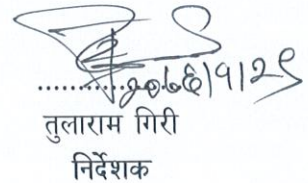 २०७६/१/२९
तुलाराम गिरी
निर्देशक